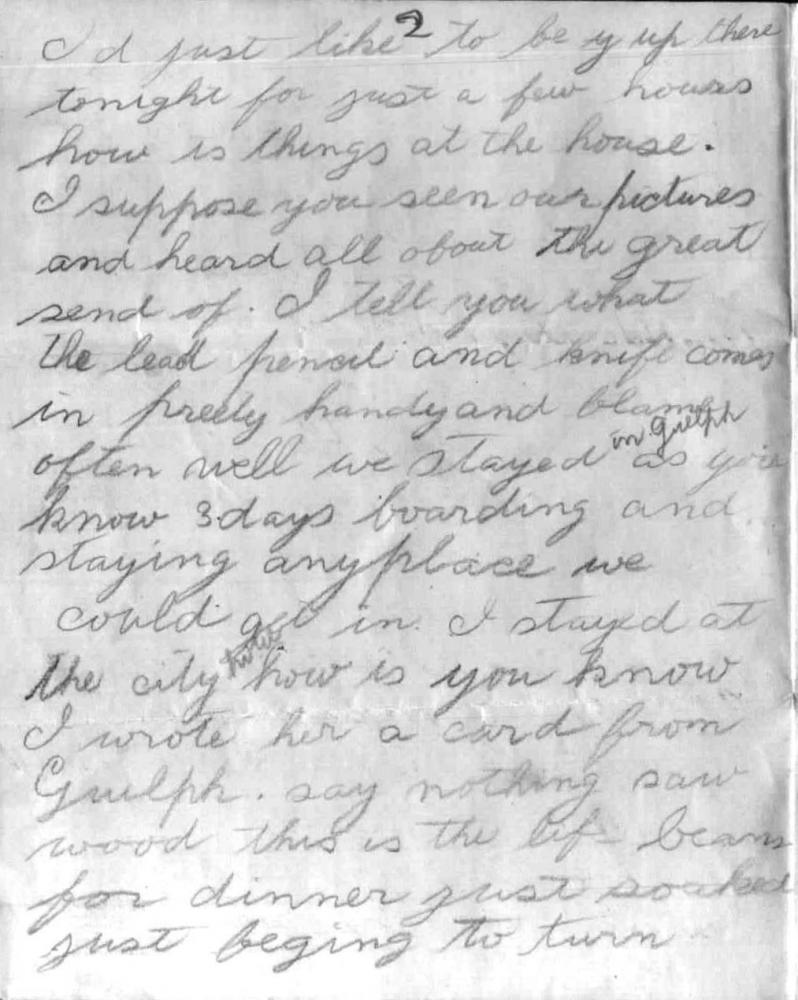 2
I'd just like to be y up there
tonight for just a few hours
how is things at the house.
I suppose you seen our pictures
and heard all about the great
send of. I tell you what
the lead pencil and knife comes
in preety handy and blame
in Guelph
often well we stayed as you
know 3 days boarding and
staying anyplace we
could get in. I stayed at
the city how is you know
I wrote her a card from
Guelph. say nothing saw
wood this is the lif beans
for dinner just soaked
just beging to turn